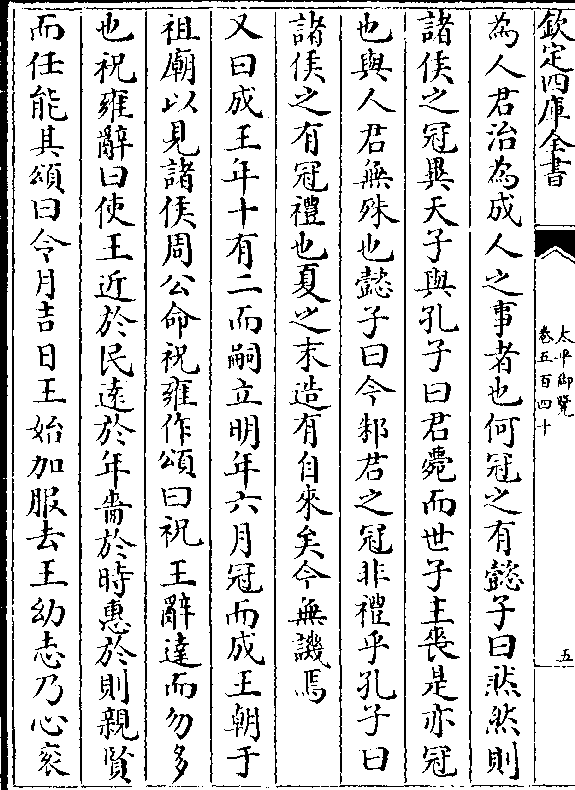 欽定四庫全書
太平御覽
卷五百四十
五
為人君治為成人之事者也何冠之有懿子曰然然則
諸侯之冠異天子與孔子曰君薨而世子主喪是亦冠
也與人君無殊也懿子曰今邾君之冠非禮乎孔子曰
諸侯之有冠禮也夏之末造有自來矣今無譏焉
又曰成王年十有二而嗣立明年六月冠而成王朝于
祖廟以見諸侯周公命祝雍作頌曰祝王辭達而勿多
也祝雍辭曰使王近於民逺於年嗇於時惠於則親賢
而任能其頌曰令月吉日王始加服去王幼志乃心衮